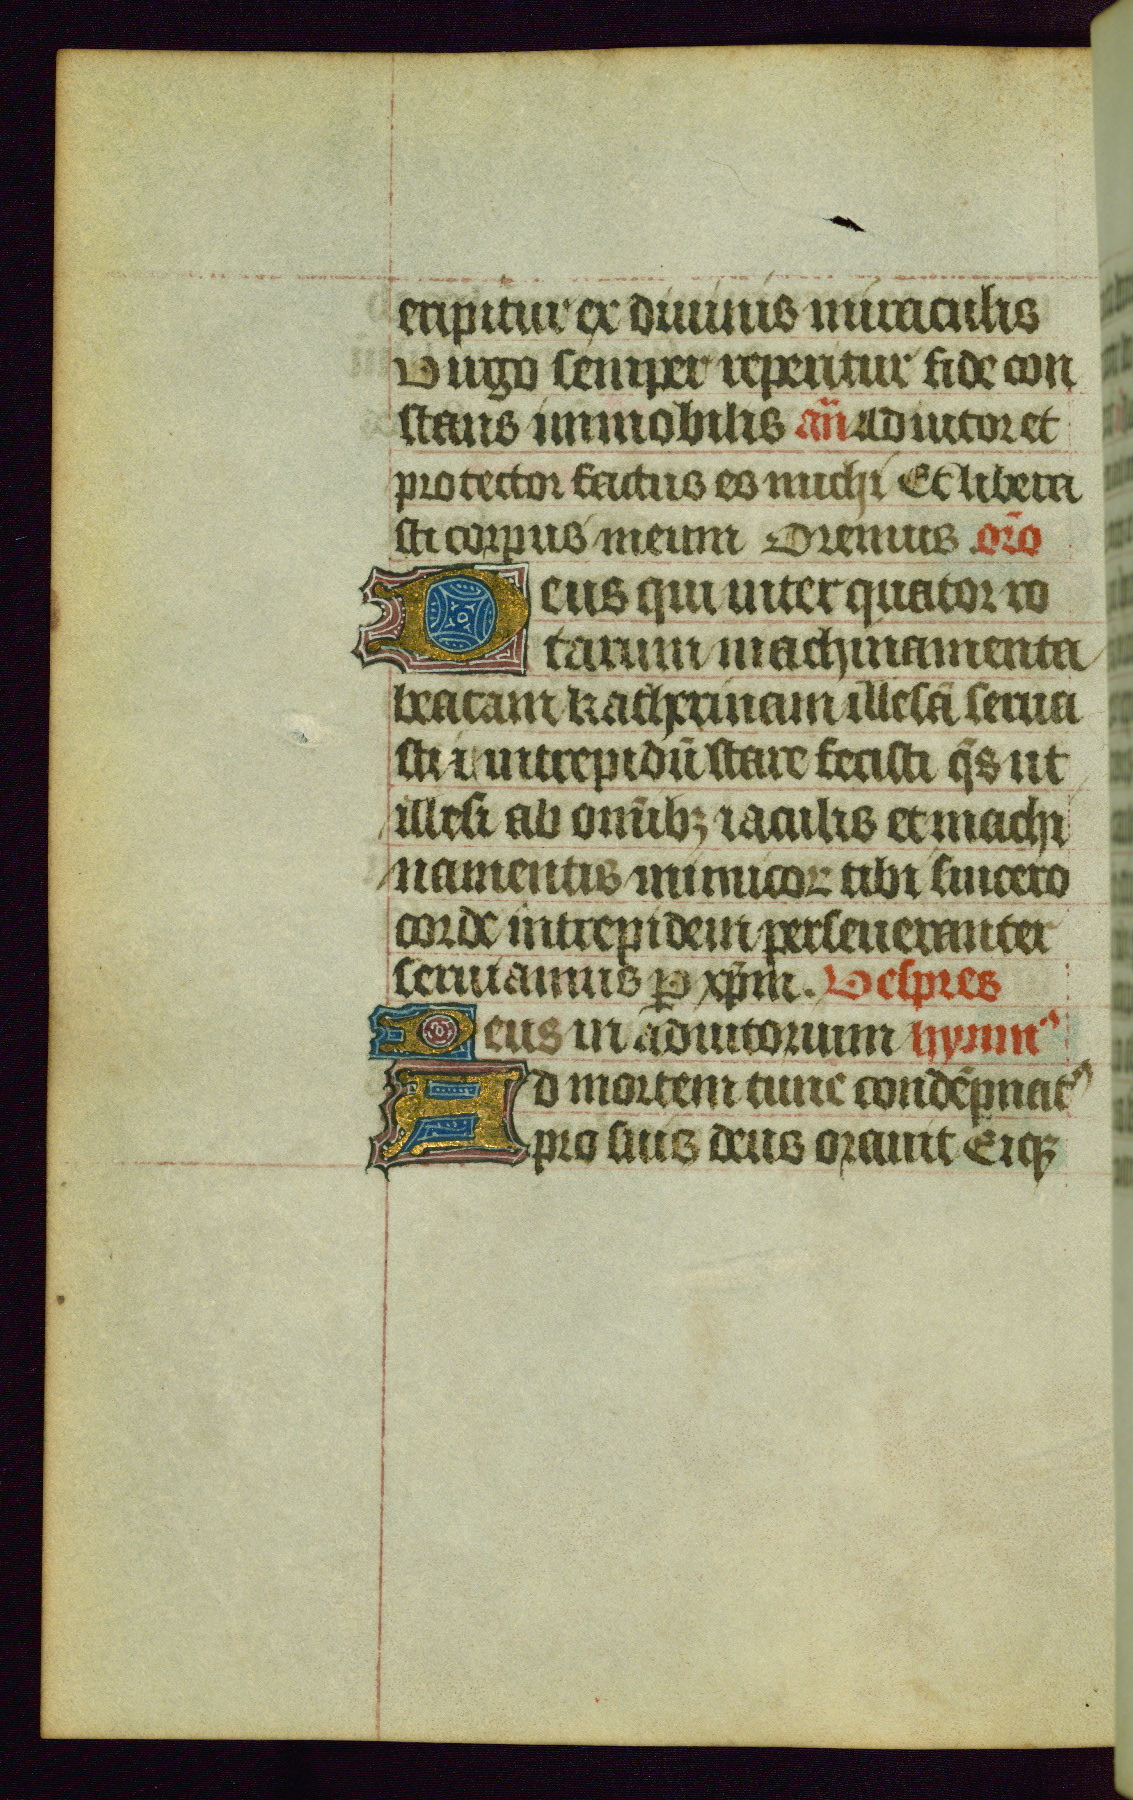 eripitur ex diuinis miraculis
Uirgo semper reperitur fide con
stans immobilis añ Adiutor et
protector factus es michi Et libera
sti corpus meum Oremus. orõ
Deus qui inter quatuor ro
tarum machinamenta
beatam katherinam illesã serua
sti ⁊ intrepidũ stare fecisti q̃s ut
illesi ab omĩbꝫ iaculis et machi
namentis inimicoꝝ tibi sincero
corde intrepidem perseueranter
seruiamus ꝑ xp̃m. Uespres
Deus in adiutorium hymnꝰ
Ad mortem tunc condẽpnatꝰ
pro suis deus orauit Eiqꝫ